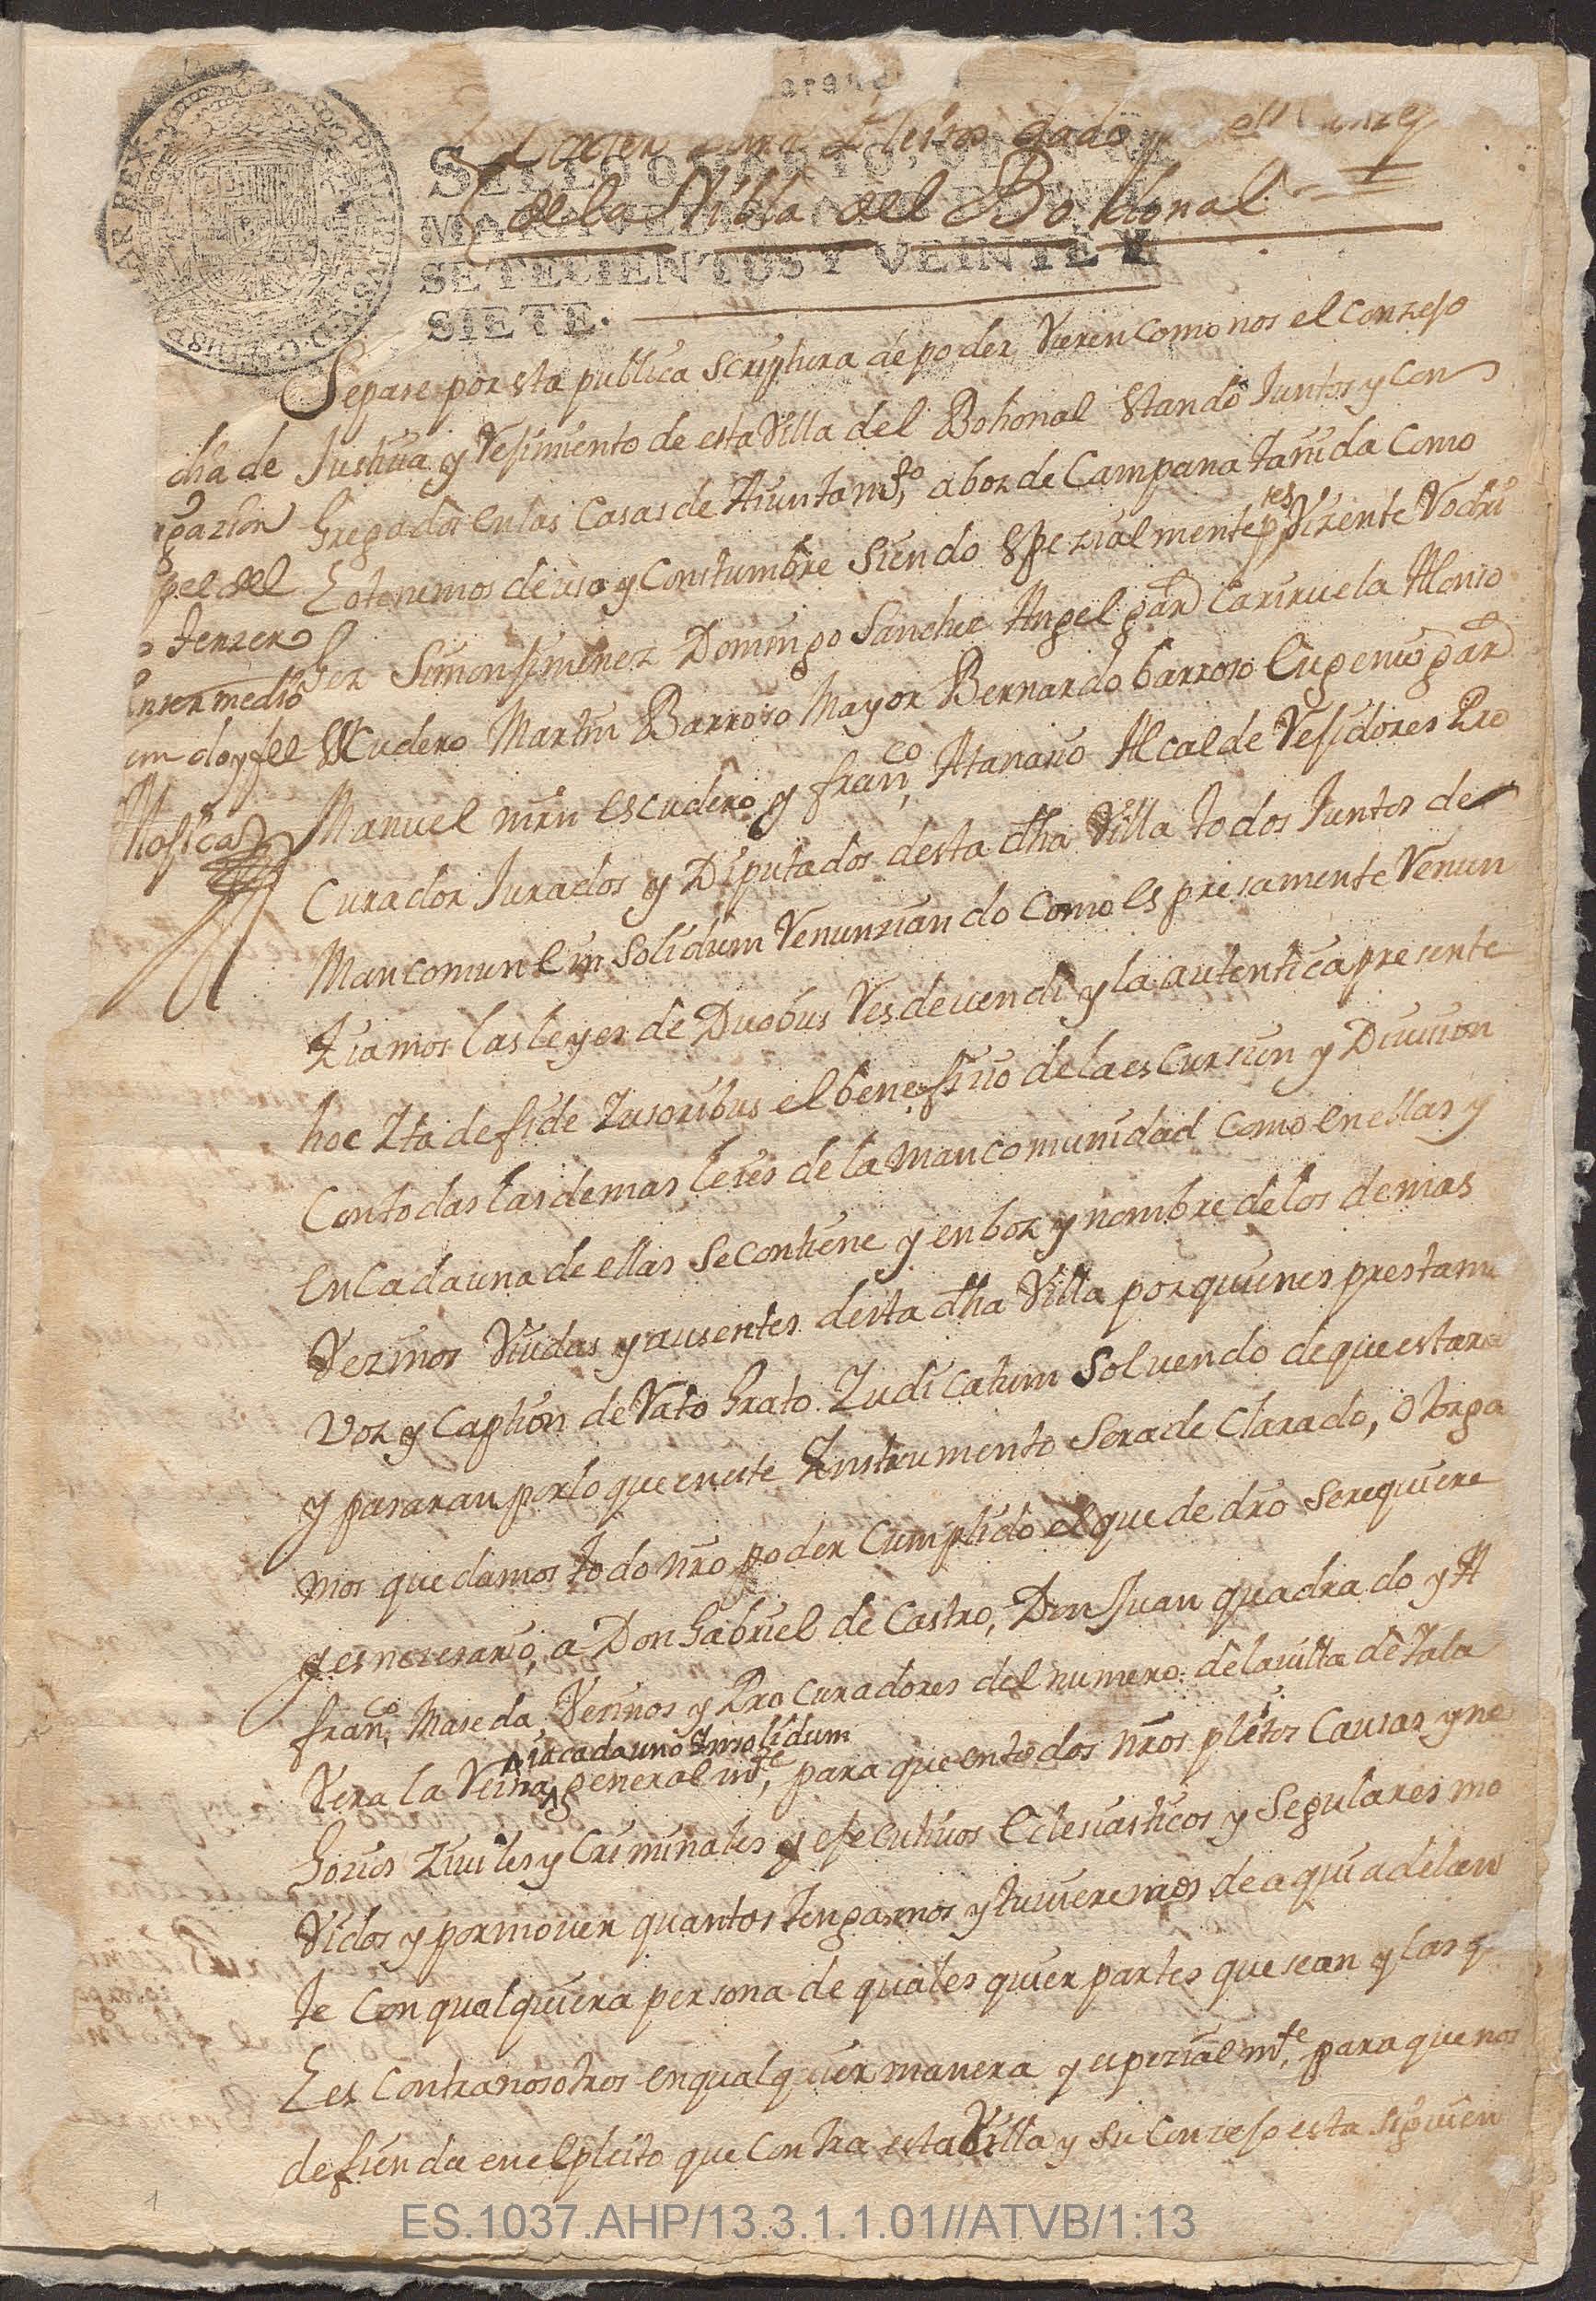 Poder para Pleitos dado por el Conzejo
de la Villa del Bohonal
SELLO QUARTO, VEINTE
MARAVEDIS,
SETECIENTOS Y VEINTE Y
SIETE.
Sepase por esta publica scriptura de poder Vieren como nos el conzejo
Justizia y Resimiento de esta Villa del Bohonal estando Juntos y con
gregados en las Casas de Aiuntamto, a boz de Campana tañida como
lo tenemos de uso y Constumbre siendo espezialmente ppres Vizente Rodri
gez Simon siminez Domingo Sanchez Angel gara Cariruela Alonso
escudero Martin Barroso Mayor Bernardo barroso Eugenio gara
Manuel mrn escudero y franco, Atanasio Alcalde Residores Pro
Curador Jurados y Diputados desta dha Villa todos Juntos de
Mancomun e in solidum Renunziando como espresamente Renun
ziamos las leyes de Duobus Res devendi y la autentica presente
hoc Ita de fide Iusoribus el benefizio de la escursion y Division
Con todas las demas leies de la mancomunidad como en ellas y
en Cada una de ellas se contiene y en boz y nombre de los demas
Vezinos Viudas y ausentes desta dha Villa por quienes prestamos
voz y Caption de Rato Grato Iudicatum Solvendo de que estaran
y pasaran por lo que en este Instrumento sera de Clarado, otorga
mos que damos todo nro poder Cumplido el que de dro se requiere
y es nezesario, a Don Gabriel de Castro, Don Juan quadrado y A
franco, Maseda Vezinos y Procuradores del numero de la villa de Tala
vera la Reina
a cada uno Insolidum
generalmte, para que en todos nros pleitos Causas y ne
gozios Ziviles y Criminales y esecutivos Eclesiasticos y Segulares mo
vidos y por mover quantos tengamos y tuvieremos de aqui adelan
te con qualquiera persona de quales quier partes que sean y las q
les contra nosotros en qualquier manera y espezialmte, para que nos
defienda en el pleito que contra esta Villa y su Conzejo esta siguien
dha de
gazion
pel del
o terzero
Intermedio
en doy fee
Mosicas
1
ES.1037.AHP/13.3.1.1.01//ATVB/1:13